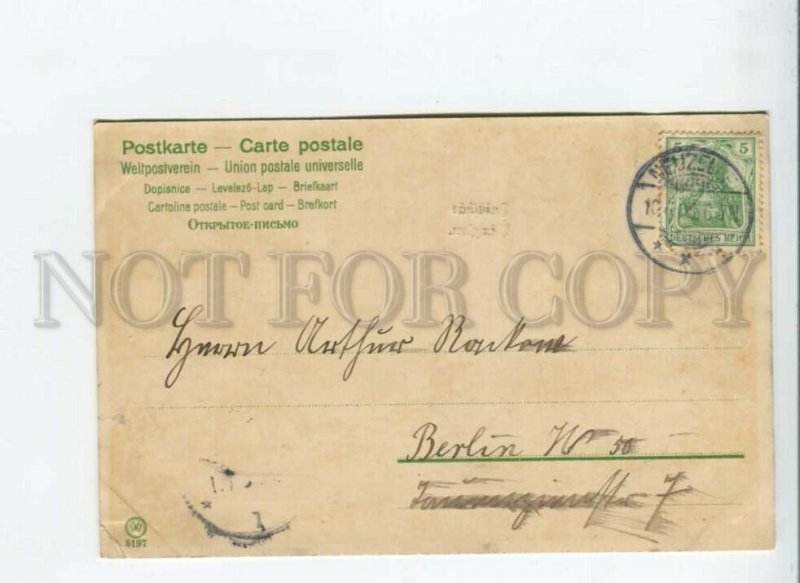 Postkarte — Carte postale
Weltpostverein — Union postale universelle
Dopisnice — Levelező-Lap — Briefkaart
Cartolina postale — Post card — Brefkort
Открытое-письмо
5 5
NEUZELLE
DEUTSCHES REICH
NOT FOR COPY
Herrn Arthur Rackow
Berlin W 50
7
1
W
5197